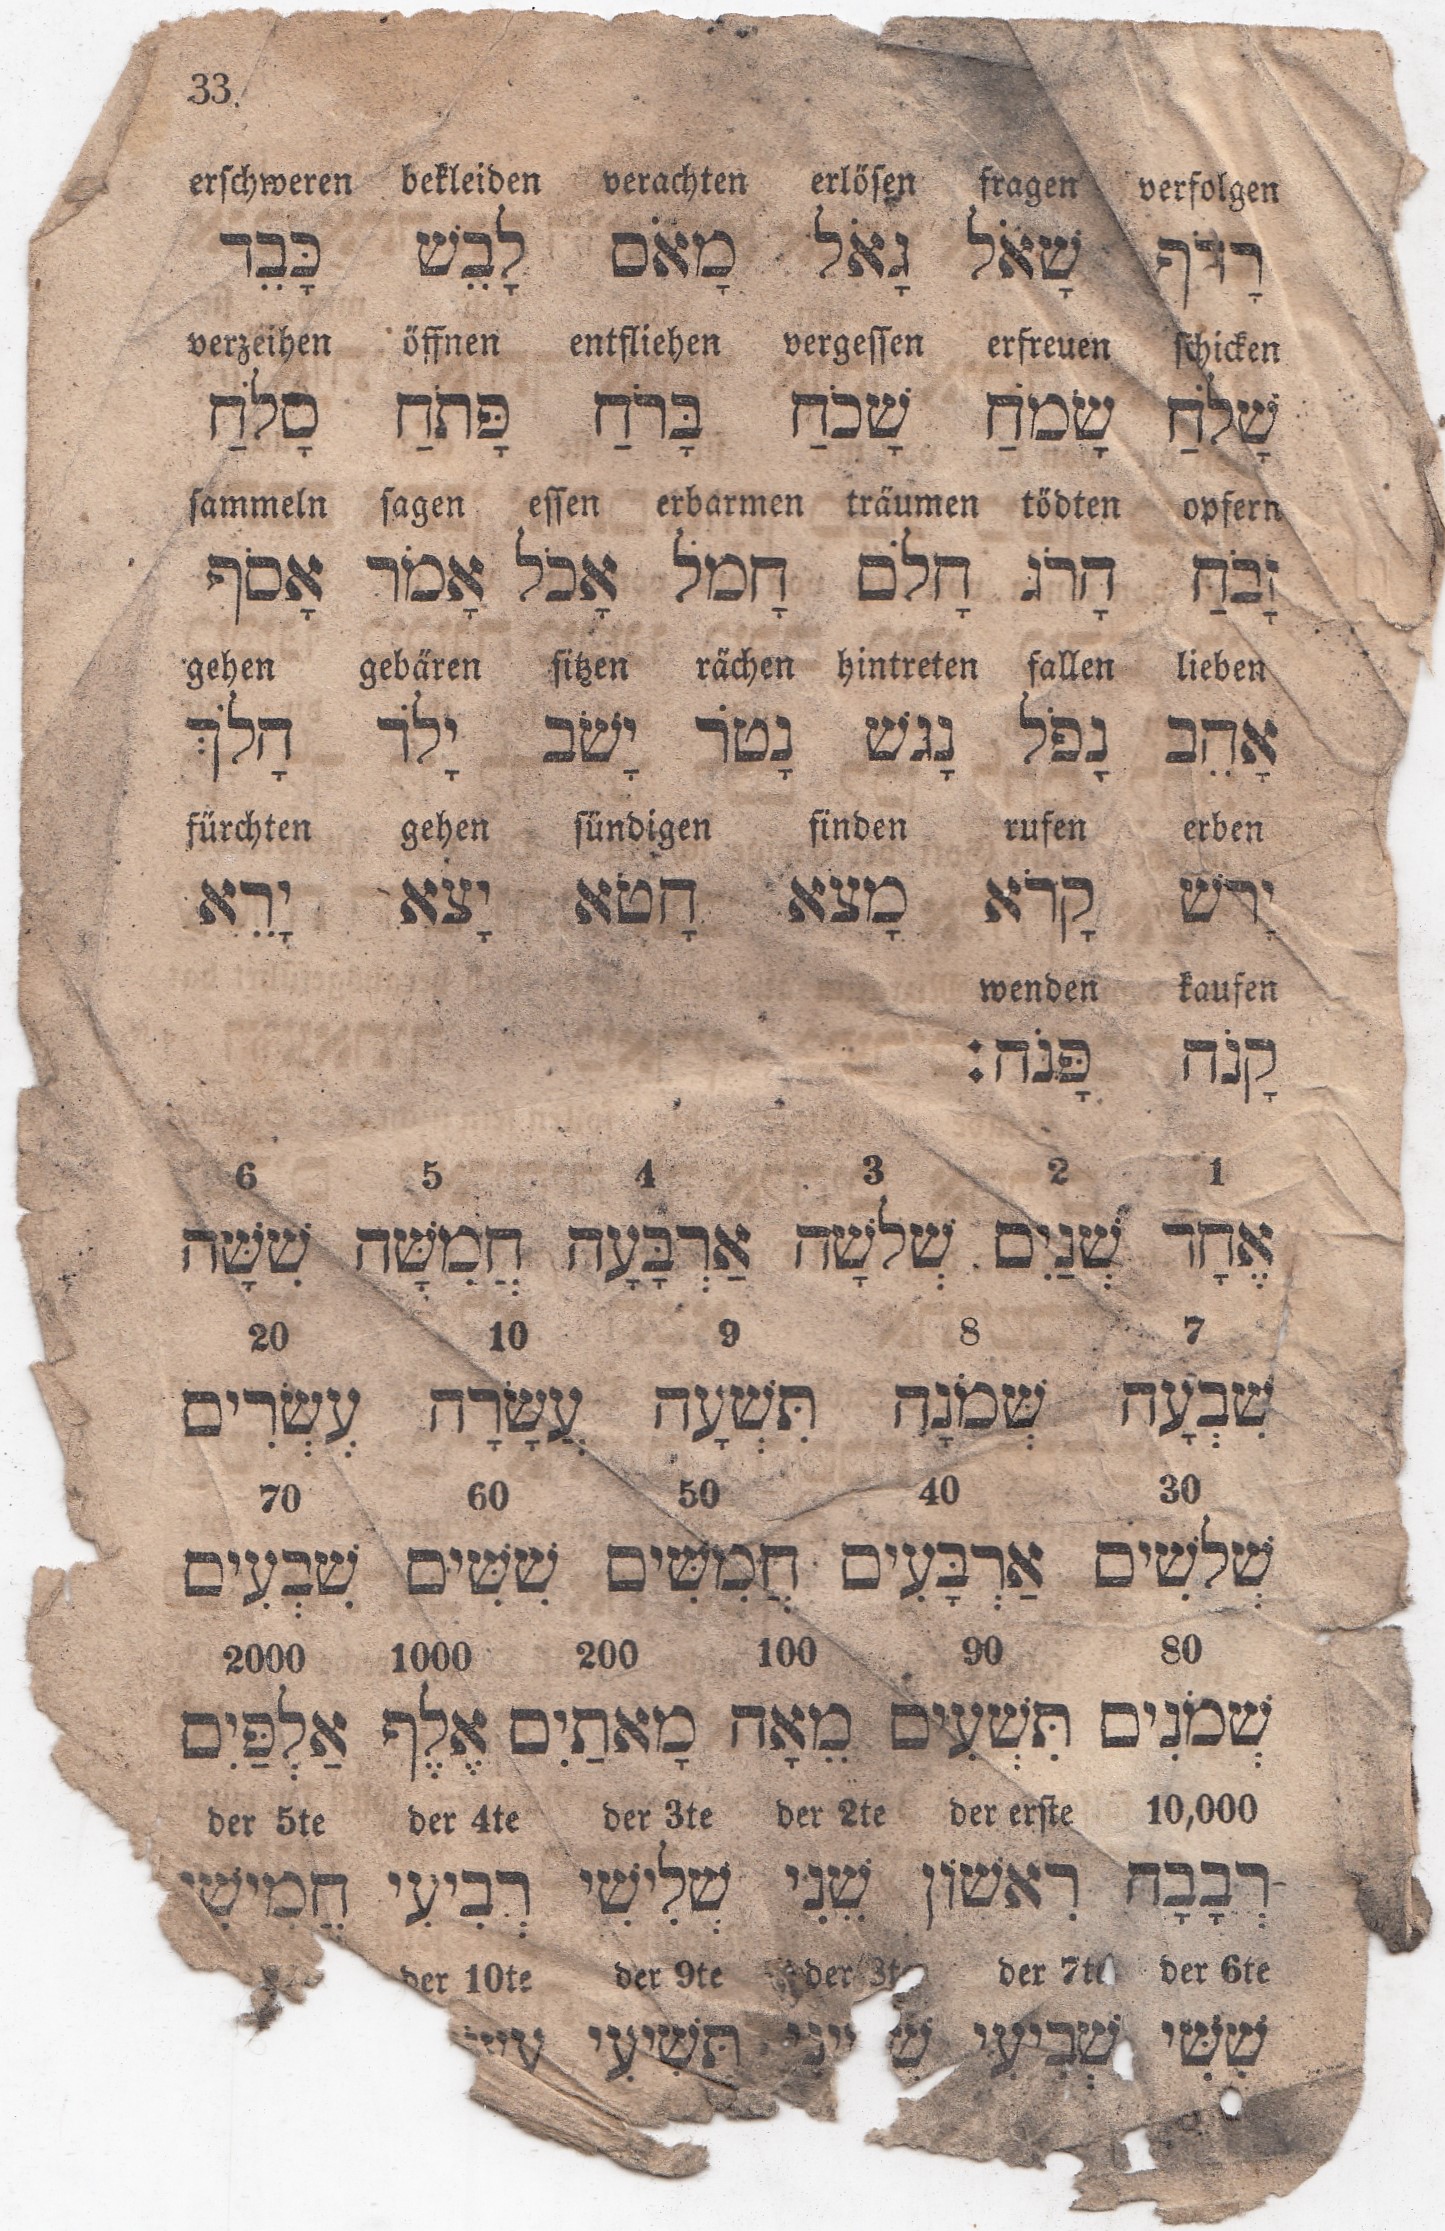 33.
erschweren bekleiden verachten erlösen fragen verfolgen
רָדֹף שָׁאֹל גָאֹל מָאֹס לָבֵשׁ כָּבֵד
verzeihen öffnen entfliehen vergessen erfreuen schicken
שָׁלֹחַ שָׂמֹחַ שָׁכֹחַ בָּרֹחַ פָּתֹחַ סָלֹחַ
sammeln sagen essen erbarmen träumen tödten opfern
זָבֹחַ הָרֹג חָלֹם חָמֹל אָכֹל אָמֹר אָסֹף
gehen gebären sitzen rächen hintreten fallen lieben
אָהֵב נָפֹל נָגֹשׁ נָטֹר יָשֹׁב יָלֹד הָלֹךְ
fürchten gehen sündigen finden rufen erben
יָרֹשׁ קָרֹא מָצֹא חָטֹא יָצֹא יָרֵא
wenden kaufen
קָנֹה פָּנֹה:
6 5 4 3 2 1
אֶחָד שְׁנַיִם שְׁלֹשָׁה אַרְבָּעָה חֲמִשָּׁה שִׁשָּׁה
20 10 9 8 7
שִׁבְעָה שְׁמֹנָה תִּשְׁעָה עֲשָׂרָה עֶשְׂרִים
70 60 50 40 30
שְׁלֹשִׁים אַרְבָּעִים חֲמִשִּׁים שִׁשִּׁים שִׁבְעִים
2000 1000 200 100 90 80
שְׁמֹנִים תִּשְׁעִים מֵאָה מָאתַיִם אֶלֶף אַלְפַּיִם
der 5te der 4te der 3te der 2te der erste 10,000
רְבָבָה רִאשׁוֹן שֵׁנִי שְׁלִישִׁי רְבִיעִי חֲמִישִׁי
der 10te der 9te der der 7te der 6te
שִׁשִּׁי שְׁבִיעִי תְּשִׁיעִי